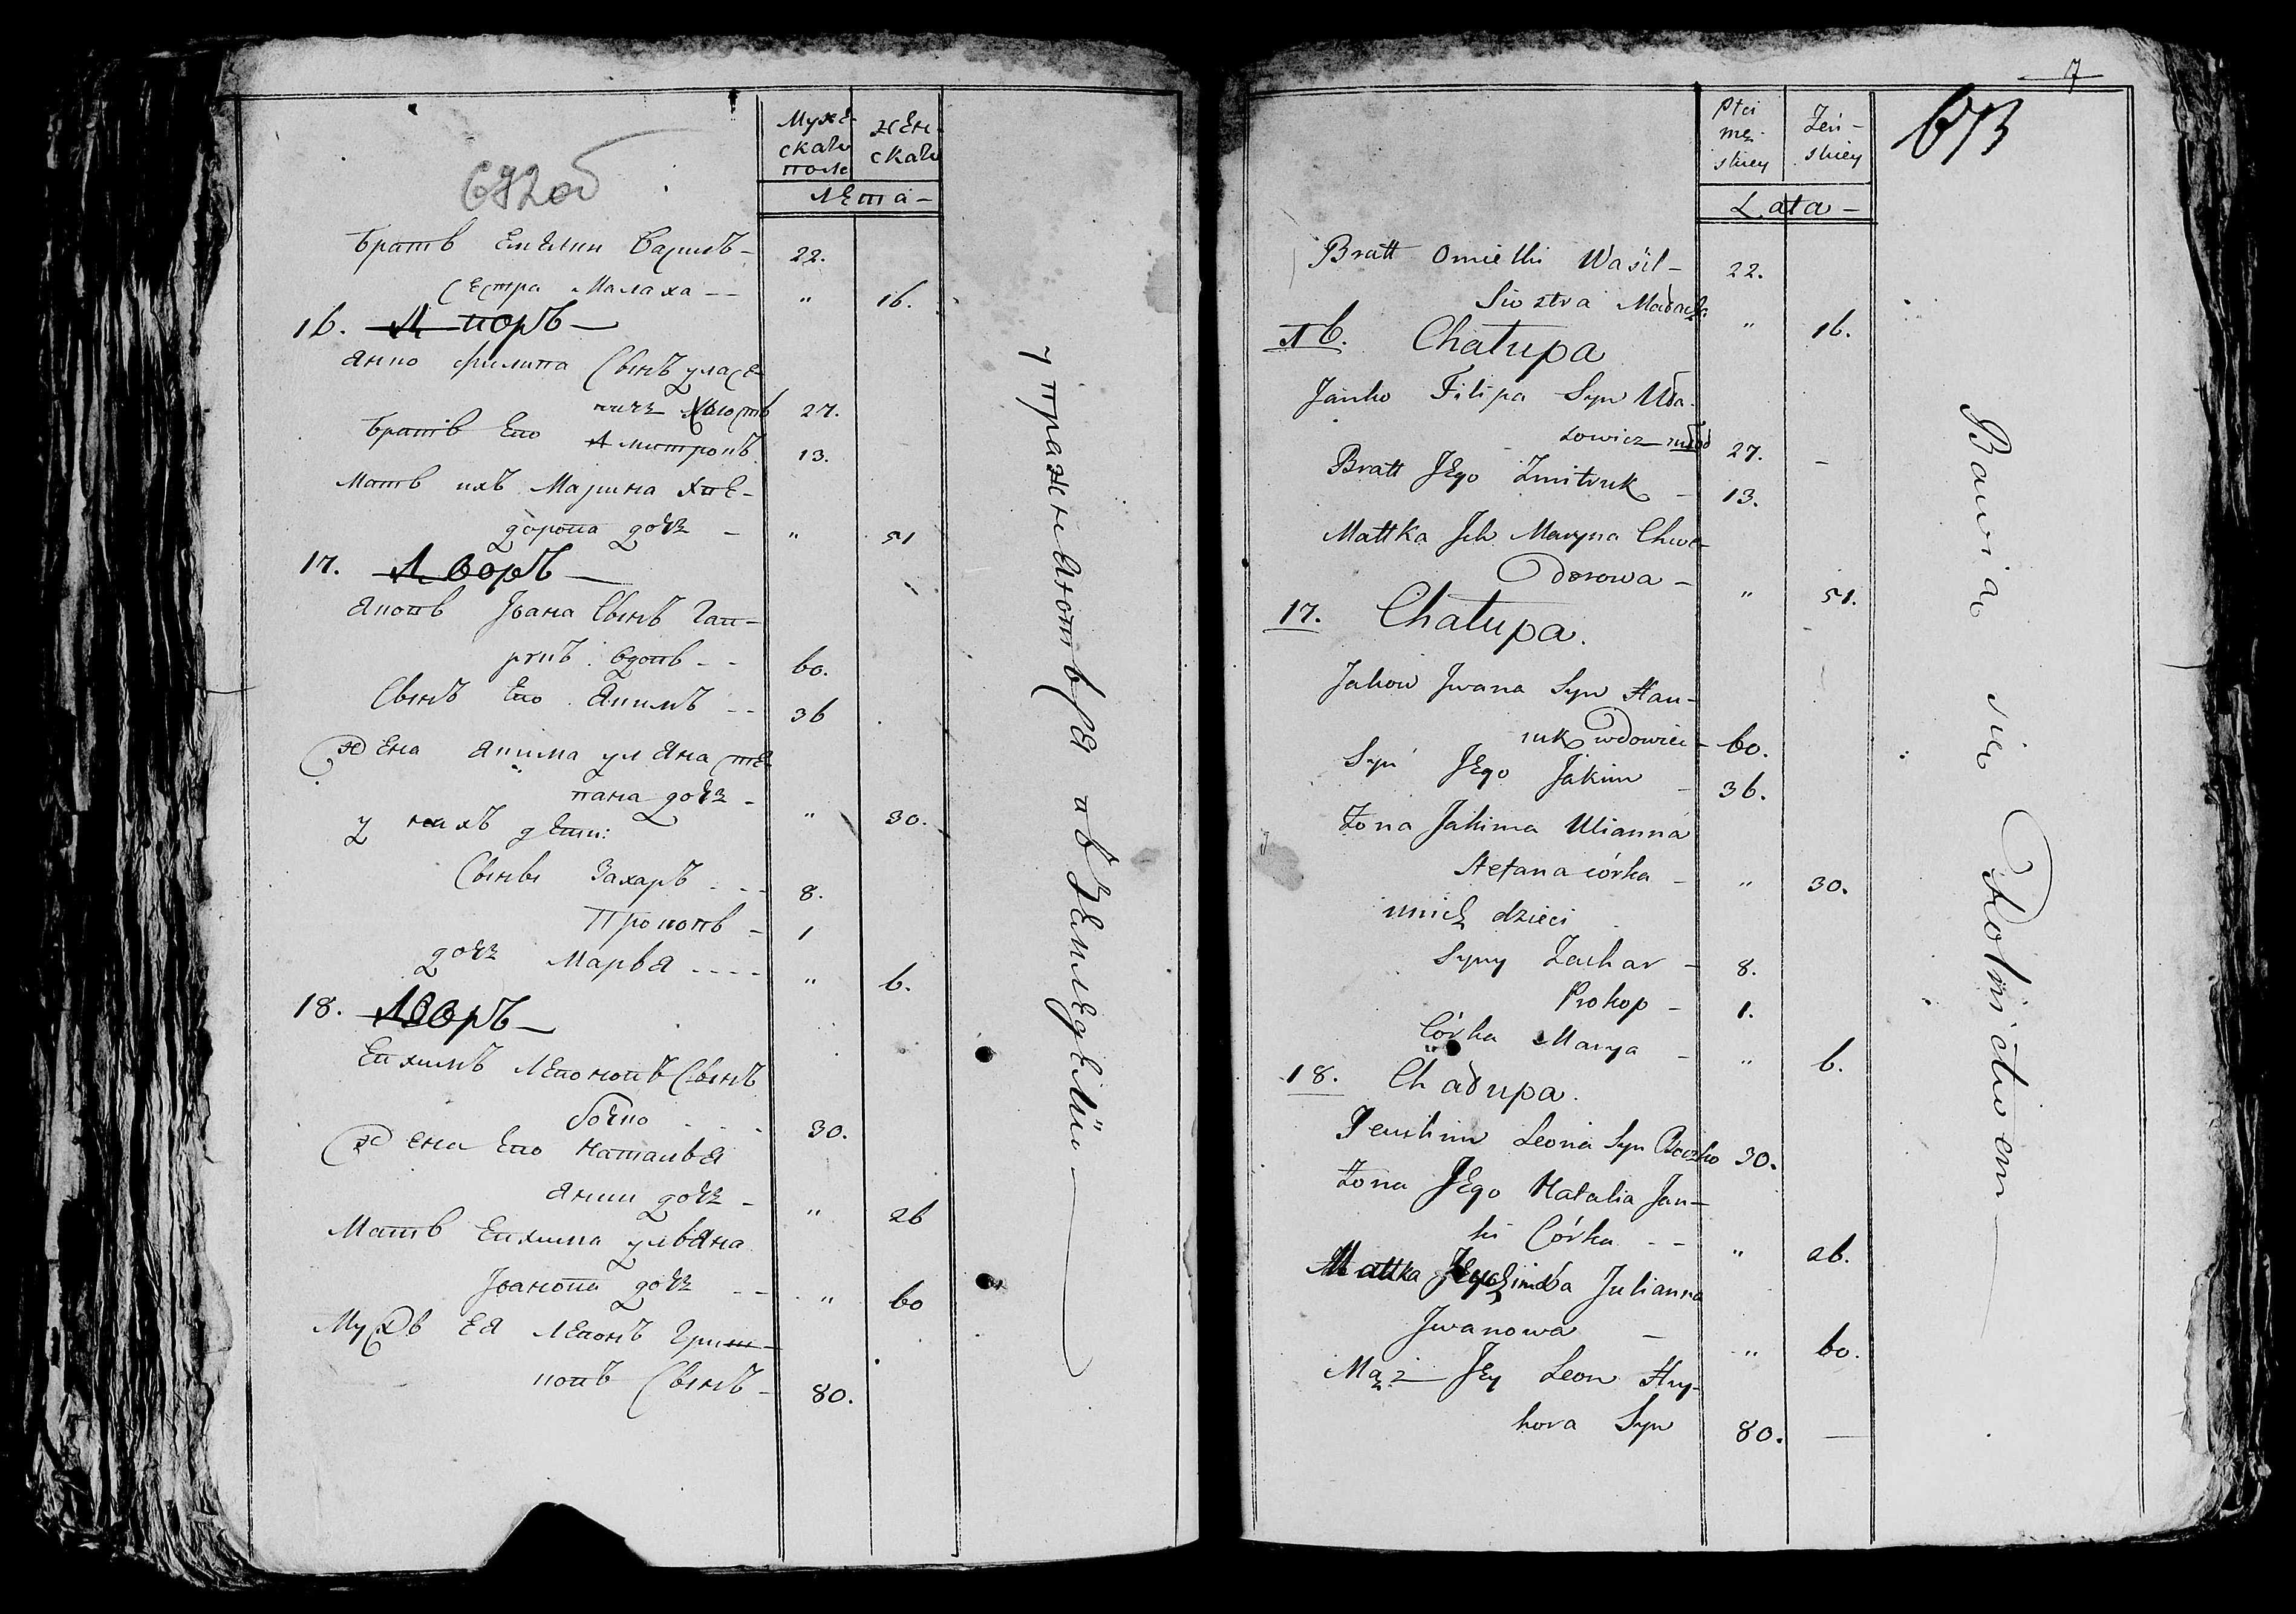 672 об
Муже-
скаго
поле
жен-
скаго
Лета -
Братъ Емелки Василь - 22.
Сестра Малаха - - " 16.
16. Дворъ -
Янко Филипа Сынъ Уласе-
27.
Братъ Его Дмитрокъ 13.
Мать ихъ Марина Хве-
дорова дочь - " 51
17. Дворъ -
Яковъ Јвана Сынъ Гав-
рукъ вдовъ - - 60.
Сынъ Его Якимъ - - 36
Жена Якима Уляна Сте-
пана дочь - " 30.
У нихъ дети:
Сыны Захаръ - - - 8.
Прокопъ - 1
дочь Марья - - - - " 6.
18. Дворъ -
Евхимъ Леоновъ Сынъ
Бочко - - - 30.
Жена Его Наталья
Янки дочь - " 26
Мать Евхима Ульяна
Јванова дочь - - " 60
Мужъ Ея Леонъ Григо-
ровъ Сынъ - 80.
Упражняются в Земледелии
7
673
Płci
mę-
skiey
Żeń-
skiey
Lata -
Bratt Omielki Waśil - 22.
Siostra Małacha " 16.
16. Chałupa
Janko Filipa Syn Uła-
sowicz młod 27. -
Bratt Jego Zmitruk - 13.
Mattka Ich Maryna Chwe-
dorowa - " 51.
17. Chałupa.
Jakow Jwana Syn Haw-
ruk wdowiec - 60.
Syn Jego Jakim - 36.
Żona Jakima Ulianna
Stefana córka - " 30.
unich dzieci
Syny Zachar - 8.
Prokop - 1.
Córka Marya - " 6.
18. Chałupa.
Jeuchim Leona Syn Boczko 30.
Żona Jego Natalia Jan-
ki Córka - - " 26.
Mattka Jeuchima Julianna
Jwanowa - " 60.
Mąż Jey Leon Hry-
hora Syn 80. -
Bawią się Rolnictwem